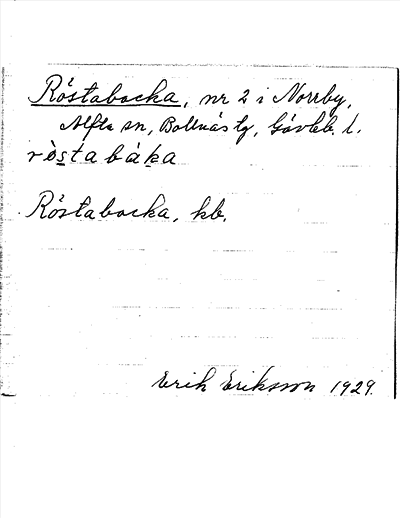 Röstabacka, nr 2 i Norrby,
Alfta sn, Bollnäs tg, Gävleb. l.
rò̀stabàka
Röstabacka, kb.
Erik Eriksson 1929.